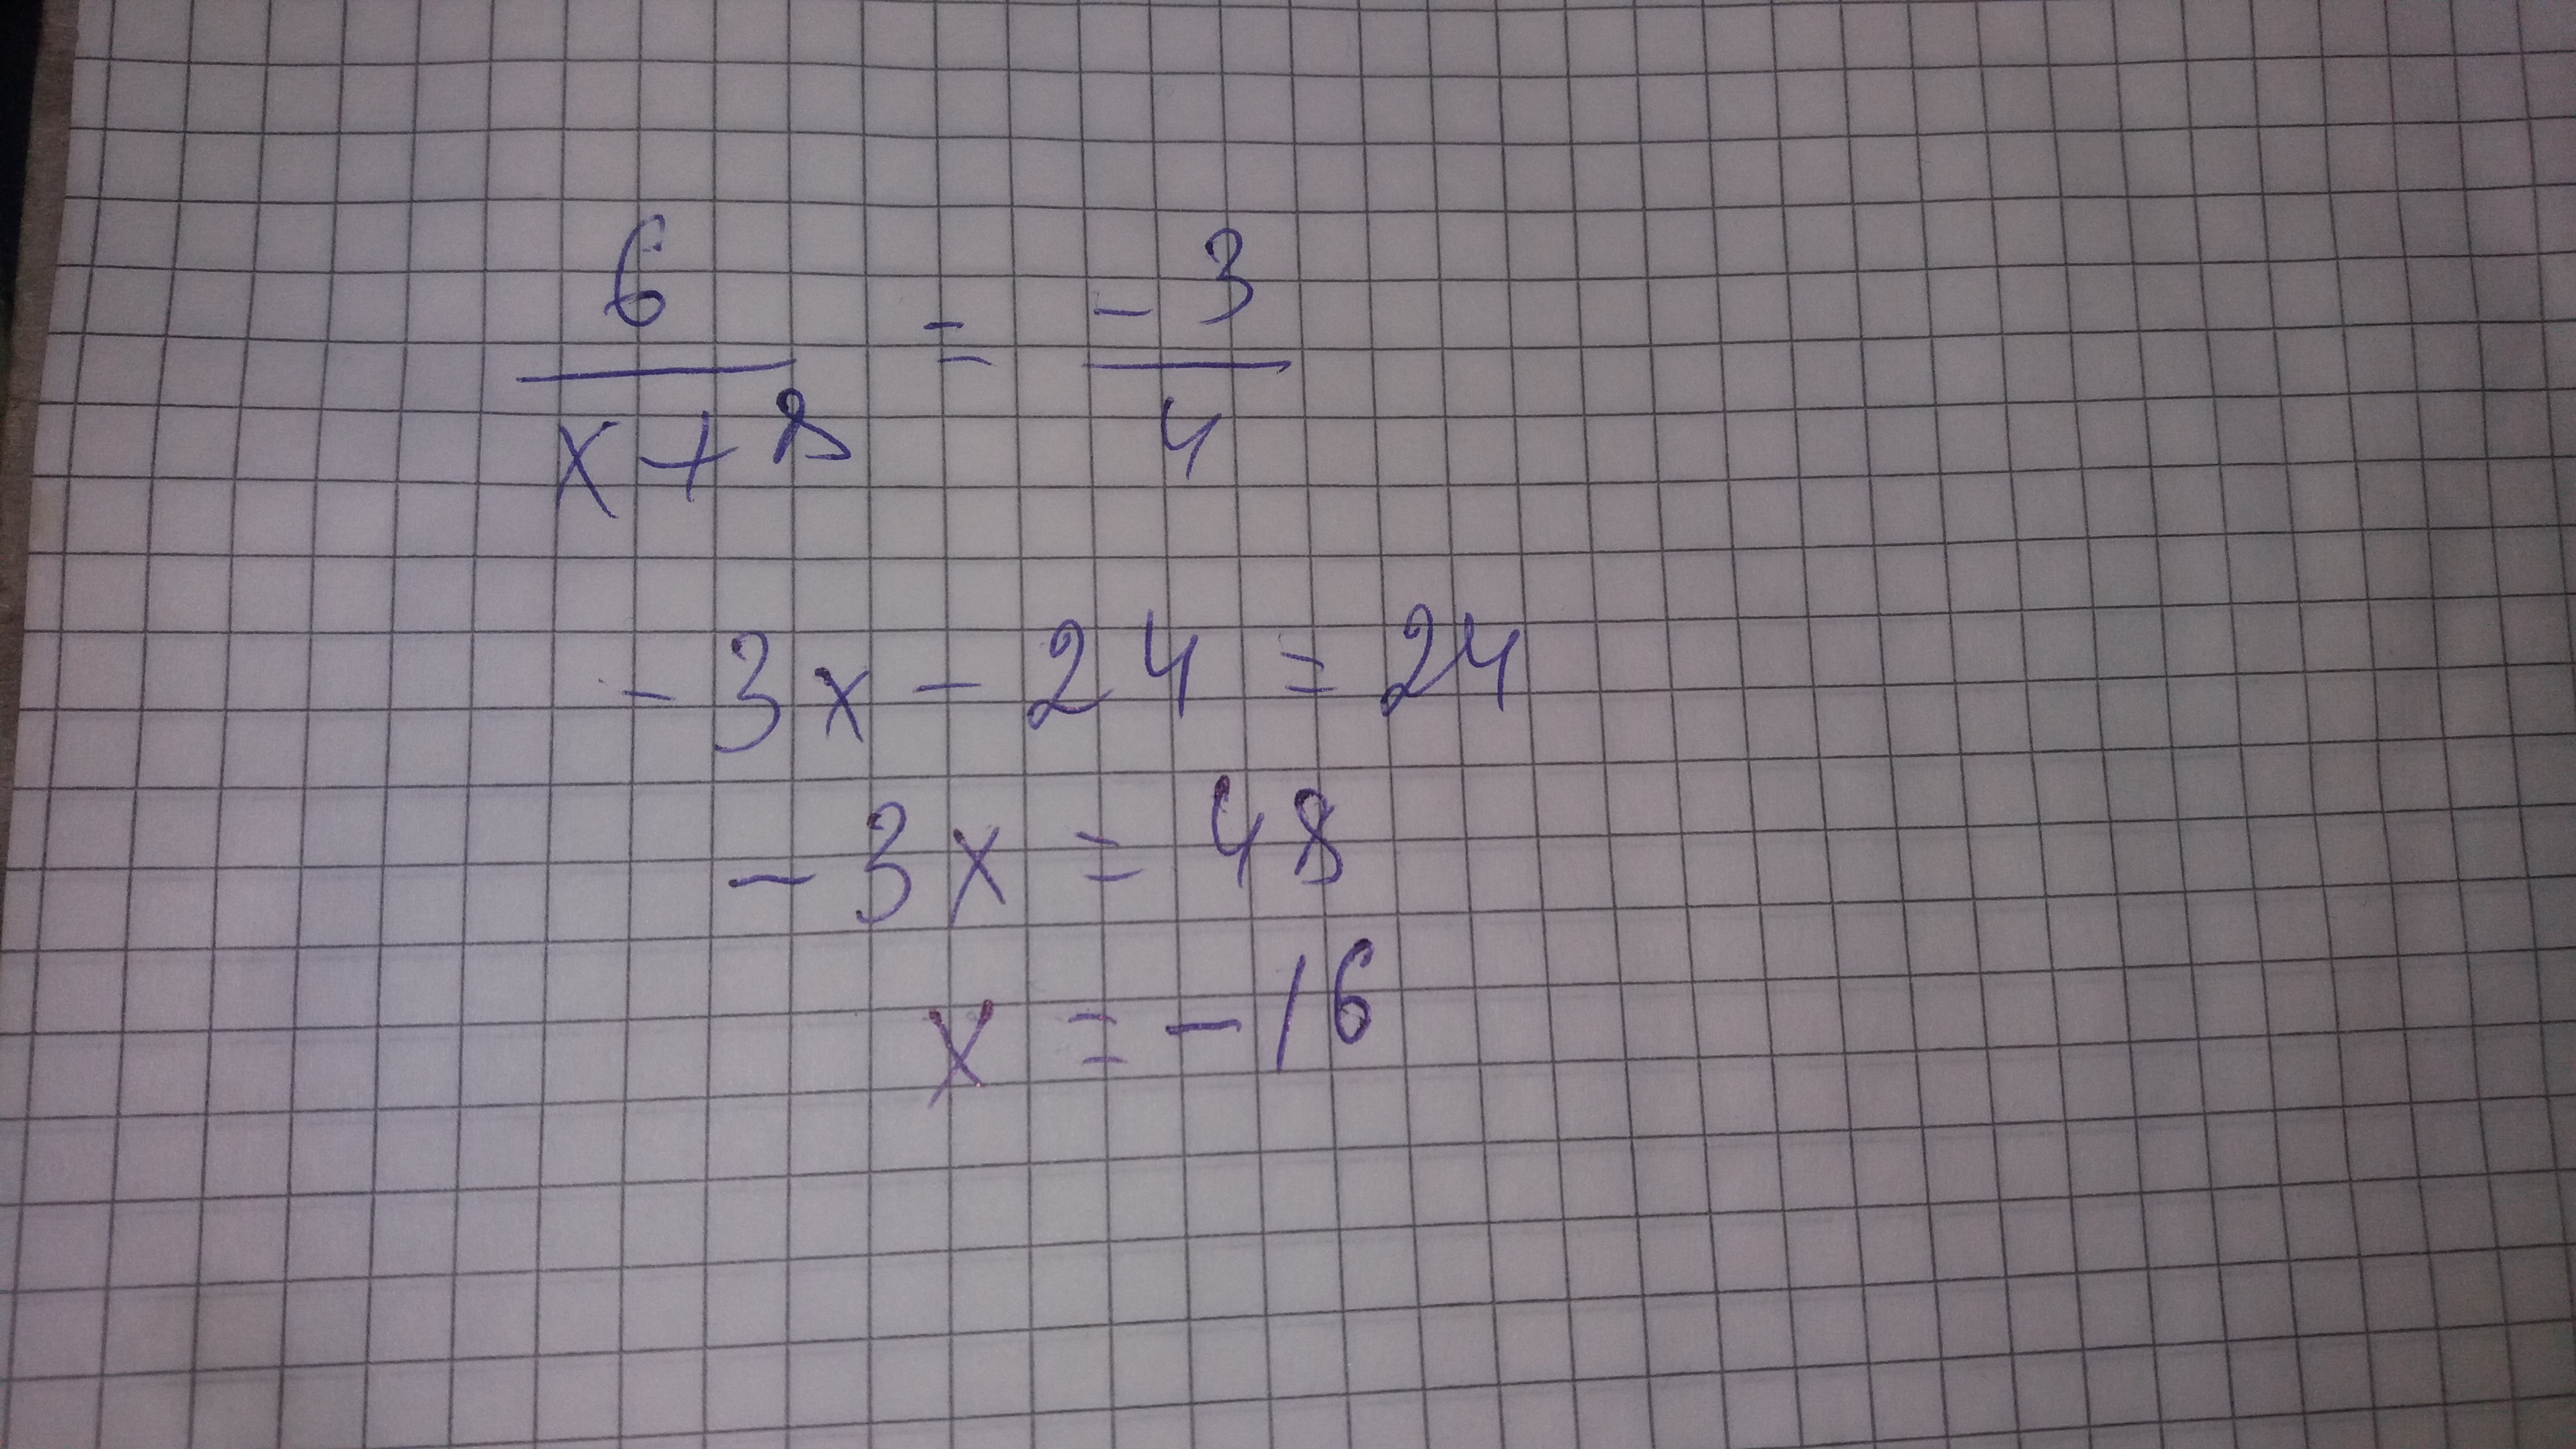 6/(x+8) = -3/4
-3x - 24 = 24
-3x = 48
x = -16